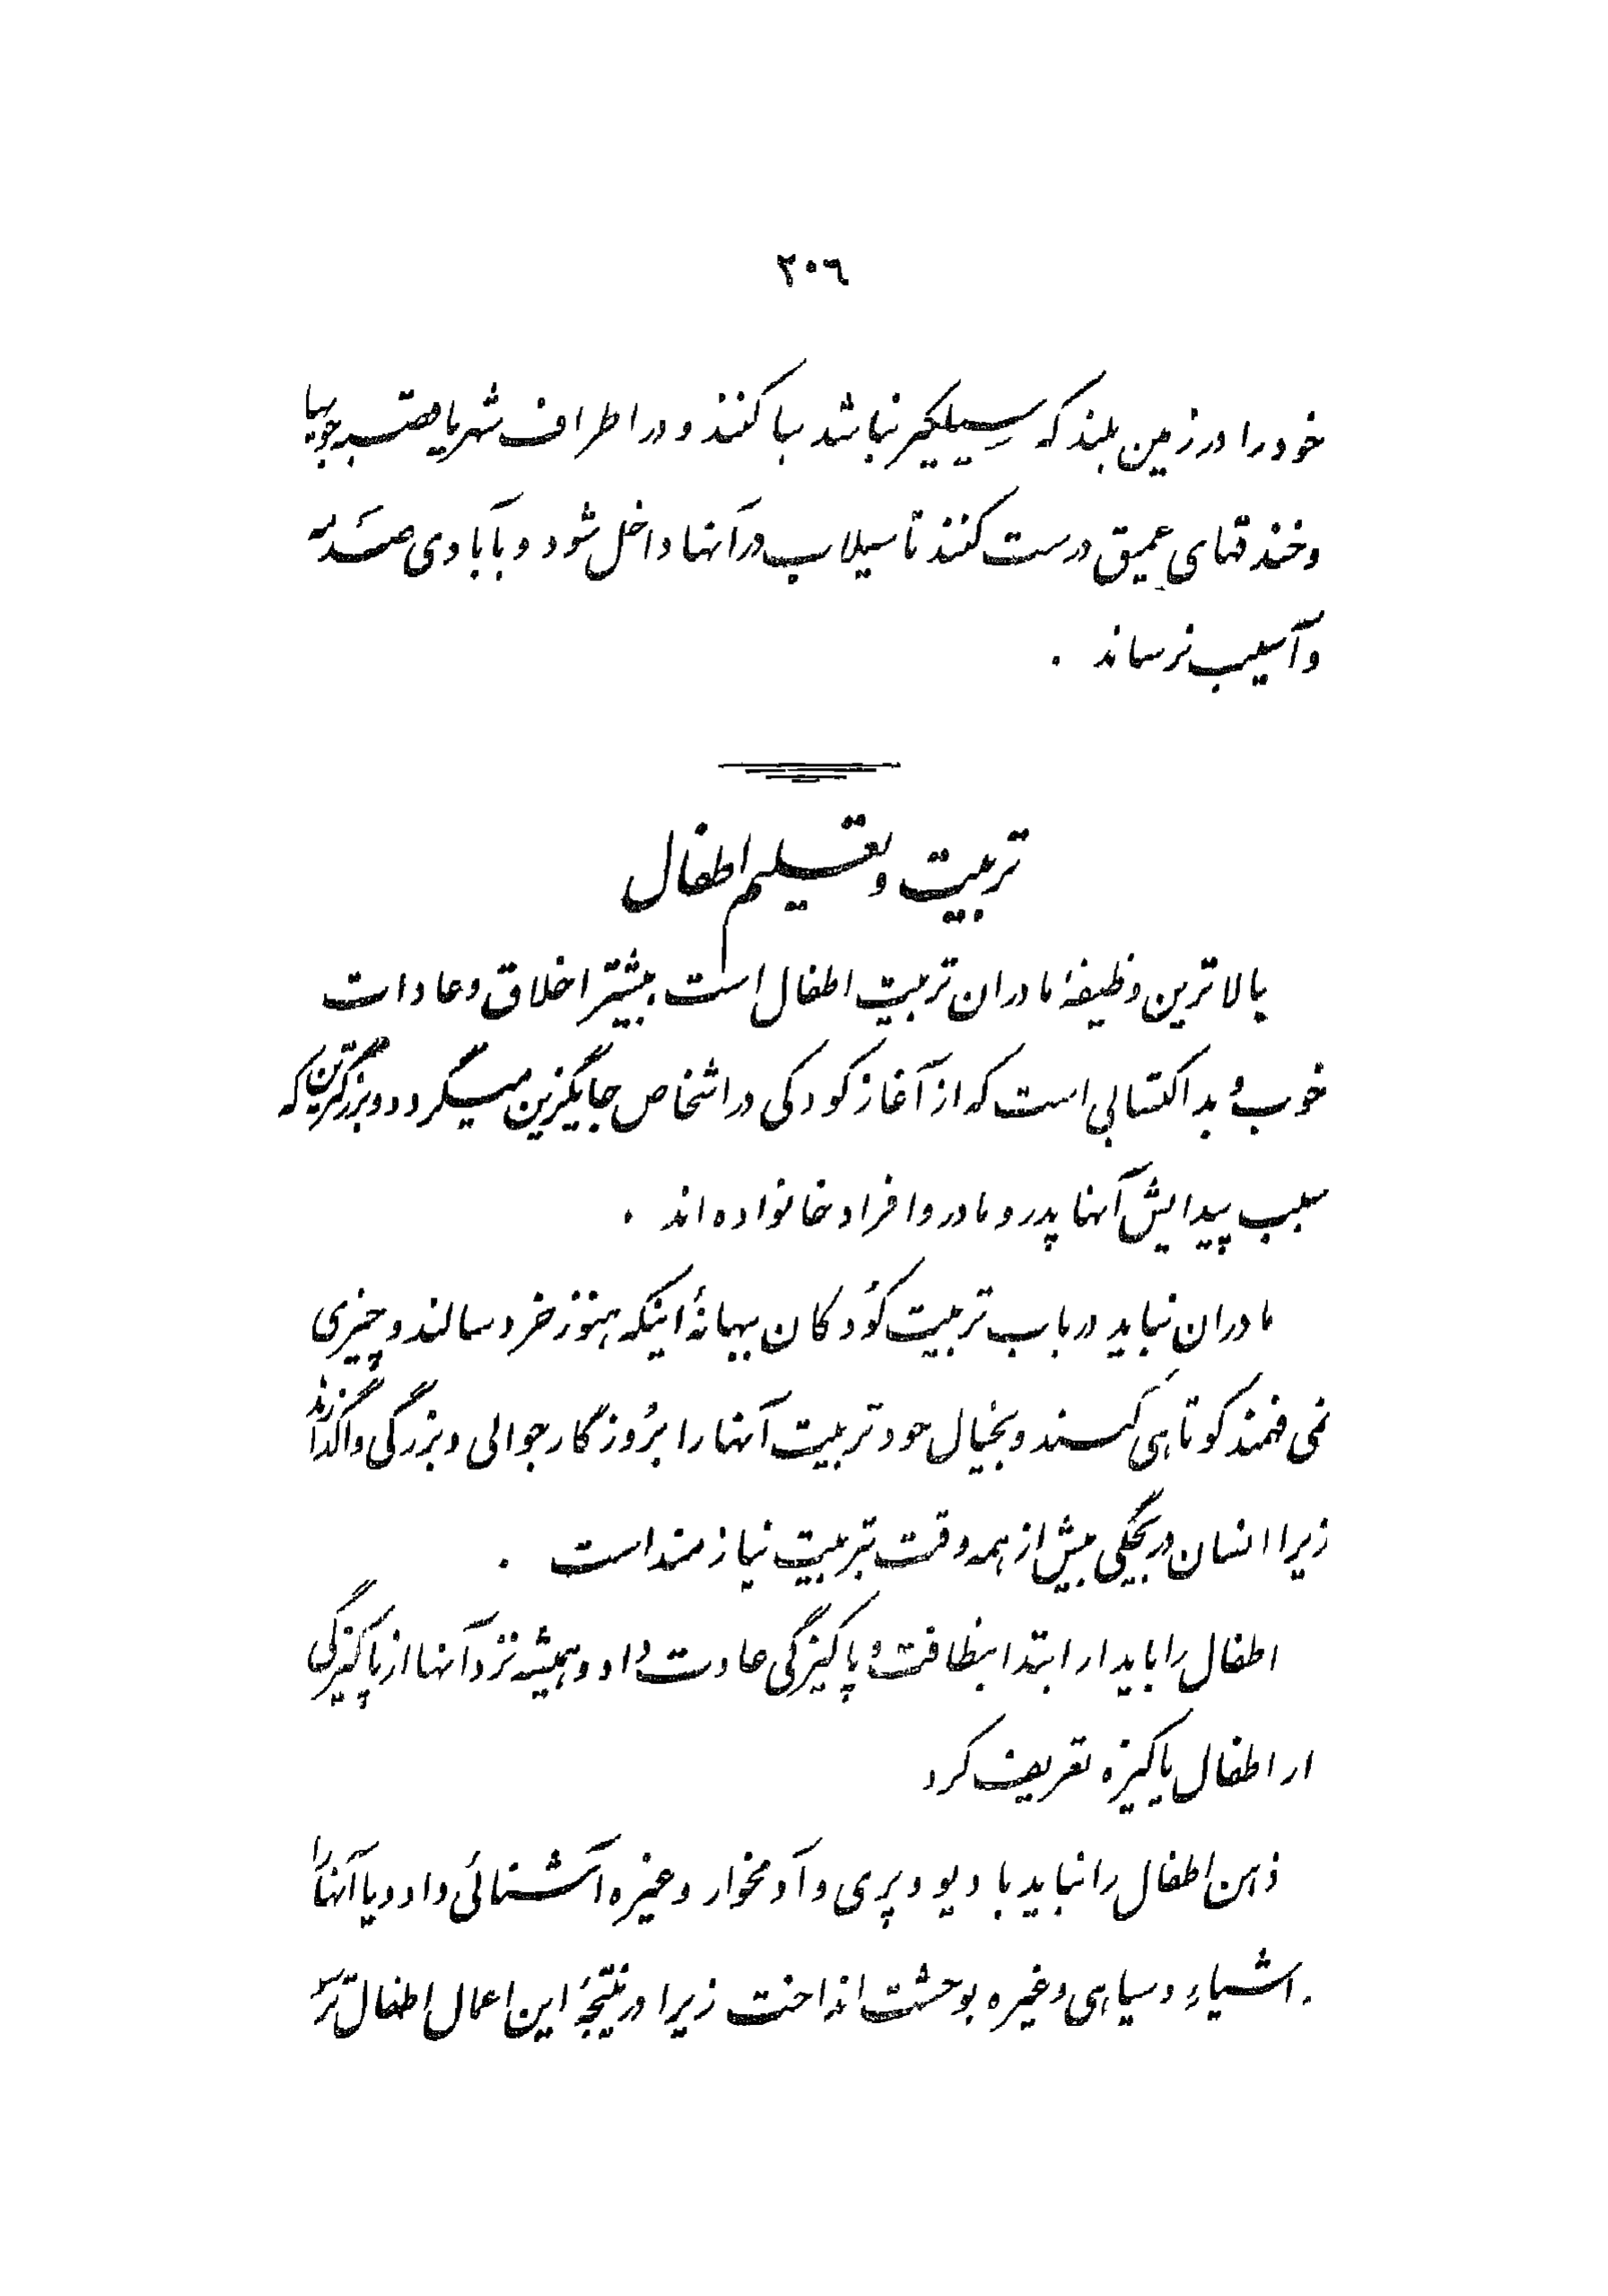 ۲۰۶
خود را در زمین بلند که سیلگیر نباشد بنا کنند و در اطراف شهر یا قصبه جویها
و خندقهای عمیق درست کنند تا سیلاب در آنها داخل شود و بآبادی صدمه
و آسیب نرساند .
تربیت و تعلیم اطفال
بالاترین وظیفهٔ مادران تربیت اطفال است بیشتر اخلاق و عادات
خوب و بد اکتسابی است که از آغاز کودکی در اشخاص جایگزین میگردد و بزرگترین که
سبب پیدایش آنها پدر و مادر و افراد خانواده اند .
مادران نباید در باب تربیت کودکان ببهانهٔ اینکه هنوز خردسالند و چیزی
نمی فهمند کوتاهی کنند و بخیال خود تربیت آنها را بروزگار جوانی و بزرگی واگذارند
زیرا انسان در بچگی بیش از همه وقت بتربیت نیازمند است .
اطفال را باید از ابتدا بنظافت و پاکیزگی عادت داد و همیشه نزد آنها از پاکیزگی
از اطفال پاکیزه تعریف کرد
ذهن اطفال را نباید با دیو و پری و آدمخوار و غیره آشنائی داد و یا آنها را
از اشیاء و سیاهی و غیره بوحشت انداخت زیرا در نتیجهٔ این اعمال اطفال